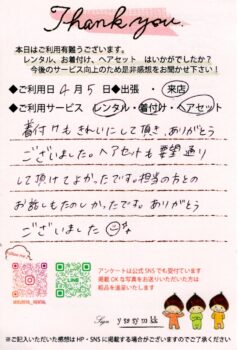 Thank you.
本日はご利用有難うございます。
レンタル、お着付け、ヘアセット はいかがでしたか？
今後のサービス向上のため是非感想をお聞かせ下さい！
◆ご利用日 4月 5日 ◆出張・来店
◆ご利用サービス レンタル・着付け・ヘアセット
着付けもきれいにして頂き、ありがとう
ございました。ヘアセットも要望通り
して頂けてよかったです。担当の方との
お話しもたのしかったです。ありがとう
ございました
アンケートは公式SNSでも受付ています
掲載OKな写真をお送りいただいた方は
粗品を進呈いたします
Sign
※ご記入いただいた感想はHP・SNSに掲載する場合がございますのでご了承ください